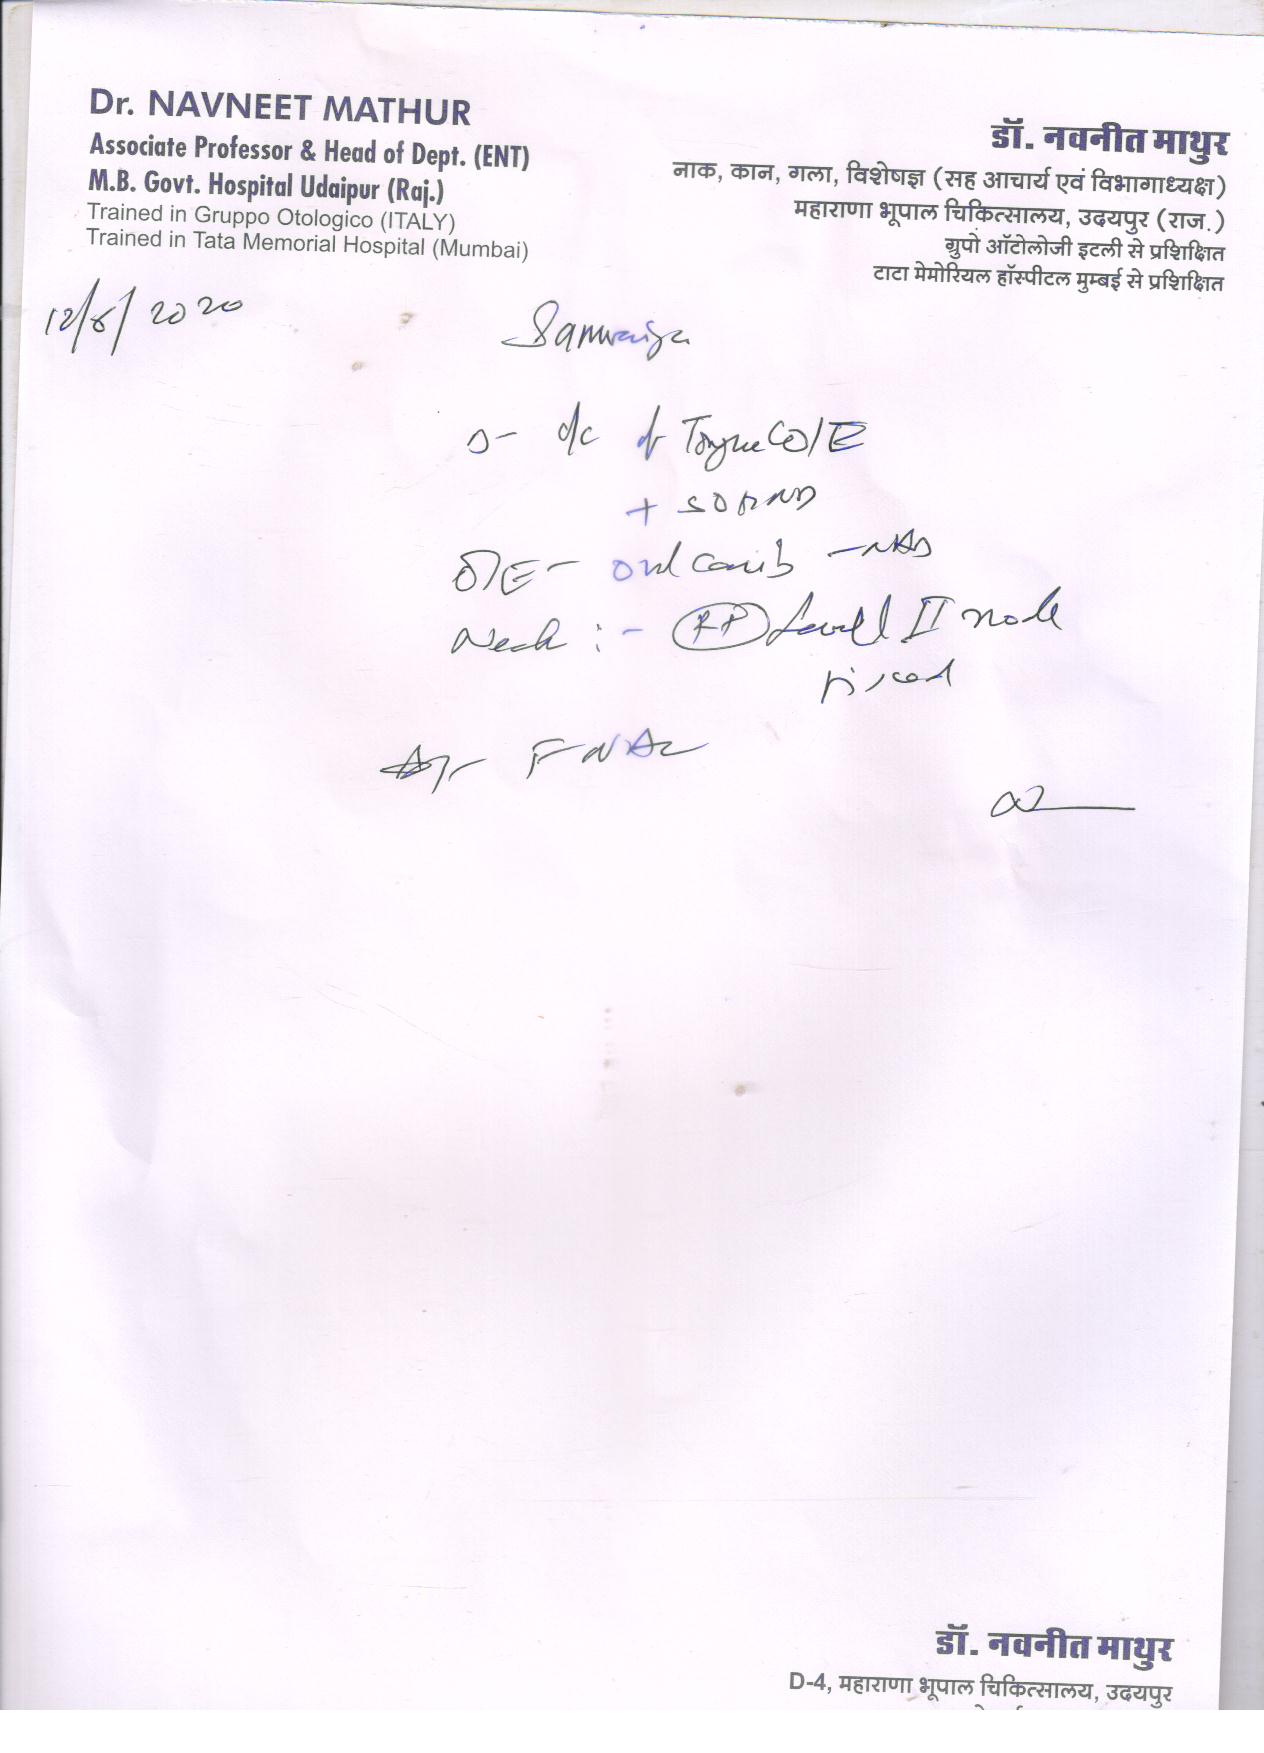 Dr. NAVNEET MATHUR
Associate Professor & Head of Dept. (ENT)
M.B. Govt. Hospital Udaipur (Raj.)
Trained in Gruppo Otologico (ITALY)
Trained in Tata Memorial Hospital (Mumbai)
डॉ. नवनीत माथुर
नाक, कान, गला, विशेषज्ञ (सह आचार्य एवं विभागाध्यक्ष)
महाराणा भूपाल चिकित्सालय, उदयपुर (राज.)
ग्रुपो ऑटोलोजी इटली से प्रशिक्षित
टाटा मेमोरियल हॉस्पीटल मुम्बई से प्रशिक्षित
12/8/2020
Tongue
+ SOHND
O/E - Oral cavity - NAD
Neck : - Level II node
fixed
FNAC
डॉ. नवनीत माथुर
D-4, महाराणा भूपाल चिकित्सालय, उदयपुर